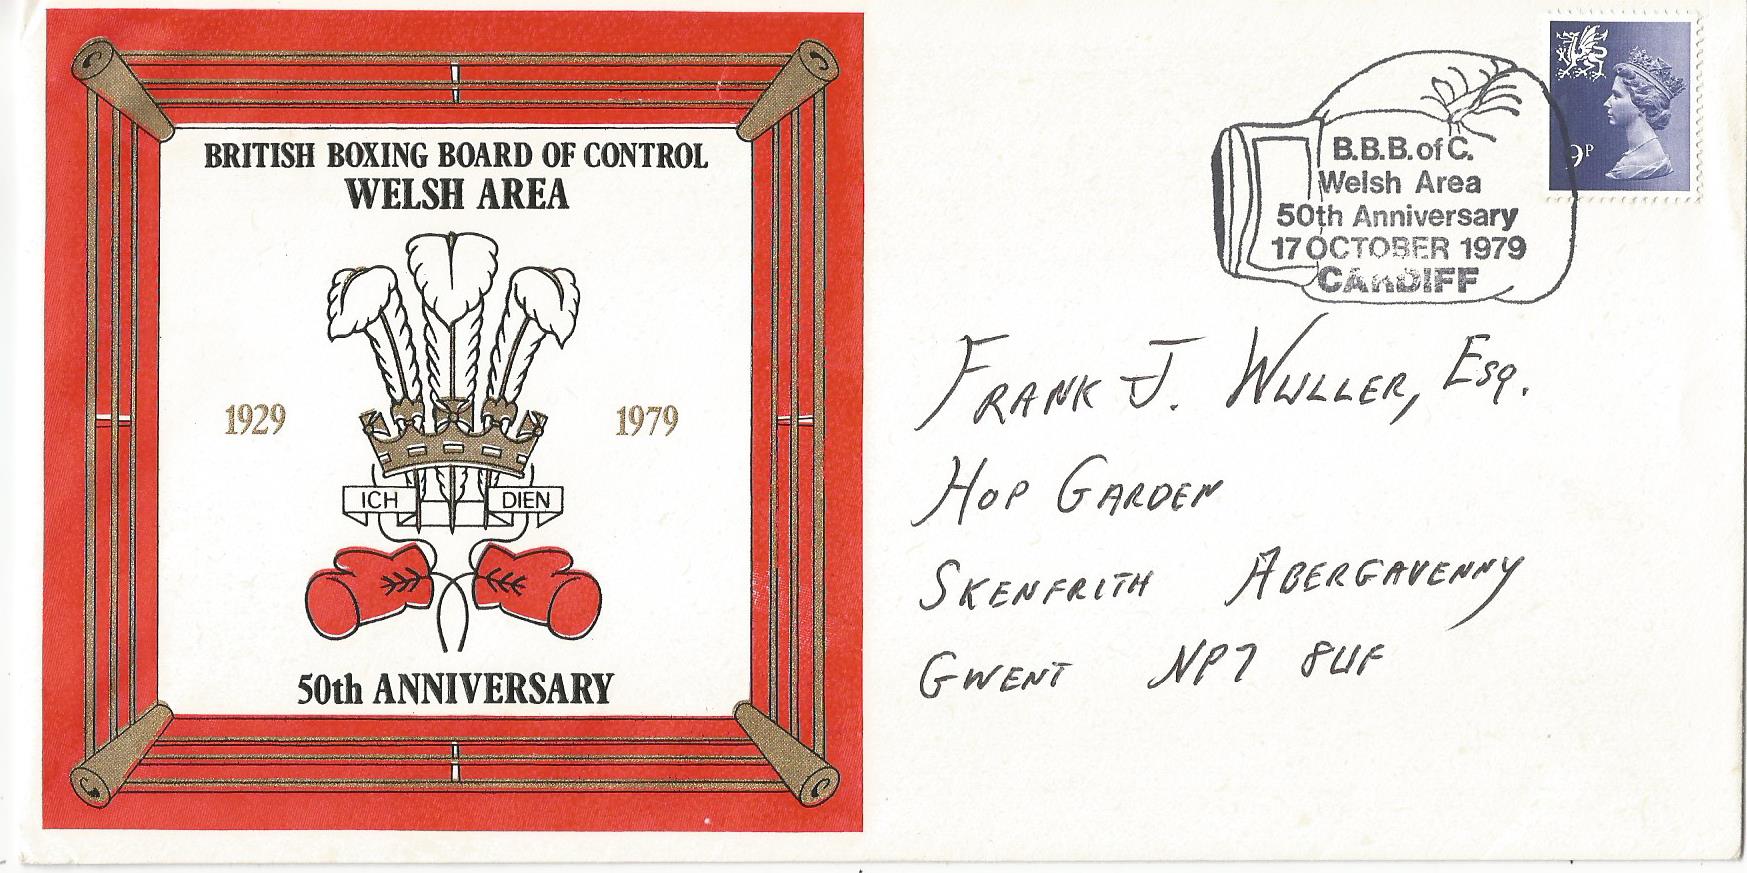 BRITISH BOXING BOARD OF CONTROL
WELSH AREA
1929 1979
ICH DIEN
50th ANNIVERSARY
B.B.B.of C.
Welsh Area
50th Anniversary
17 OCTOBER 1979
CARDIFF
9P
FRANK J. WULLER, ESQ.
HOP GARDEN
SKENFRITH ABERGAVENNY
GWENT NP7 8UF